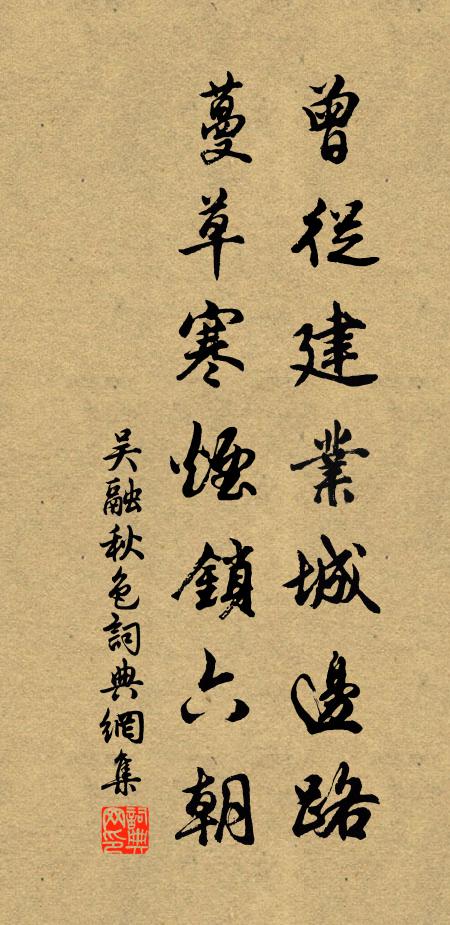 曾從建業城邊路
蔓草寒煙鎖六朝
吴融秋色詞典網集
詞典网印